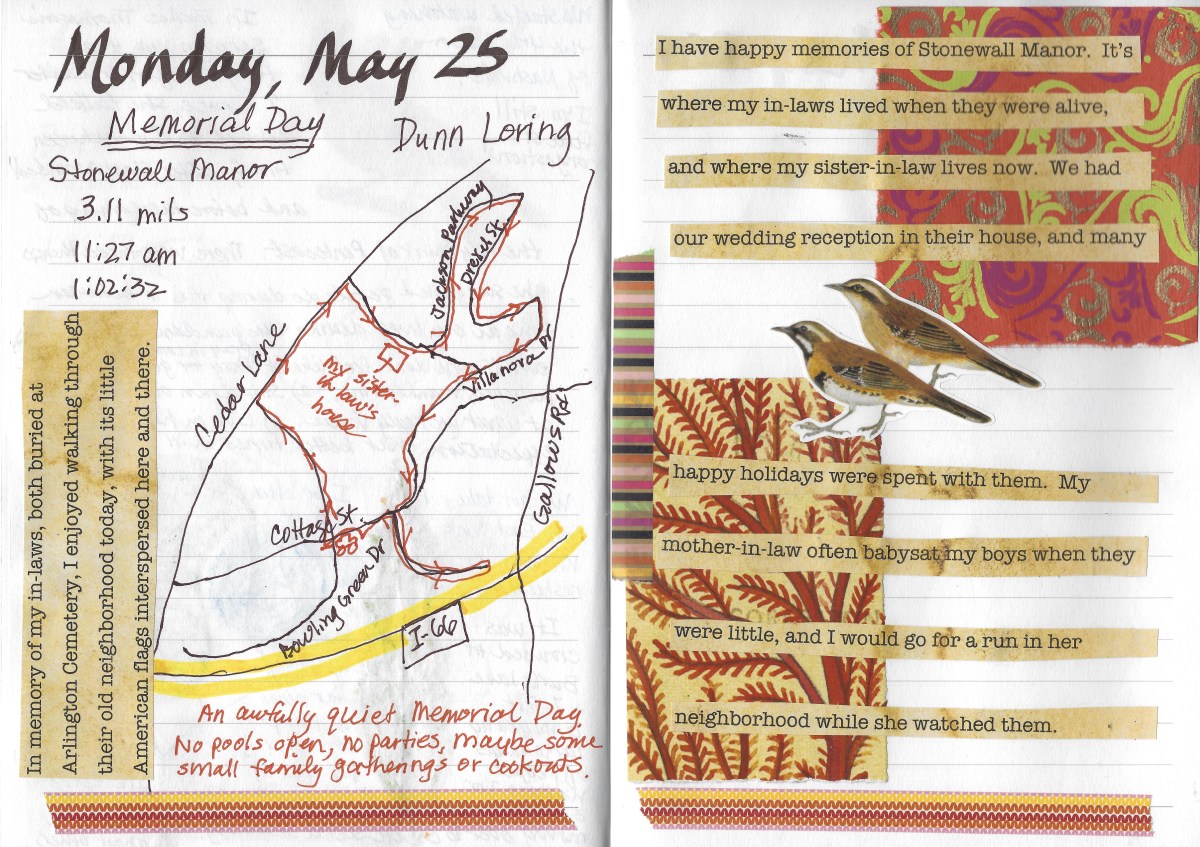 Monday, May 25
Memorial Day
Dunn Loring
Stonewall Manor
3.11 mils
11:27 am
1:02:32
Jackson Parkway
Drexel St.
Cedar Lane
my sister-
in law's
house
Villanova Dr
Gallows Rd
Cottage St.
Bowling Green Dr
I-66
In memory of my in-laws, both buried at
Arlington Cemetery, I enjoyed walking through
their old neighborhood today, with its little
American flags interspersed here and there.
An awfully quiet Memorial Day.
No pools open, no parties, maybe some
small family gatherings or cookouts.
I have happy memories of Stonewall Manor. It's
where my in-laws lived when they were alive,
and where my sister-in-law lives now. We had
our wedding reception in their house, and many
happy holidays were spent with them. My
mother-in-law often babysat my boys when they
were little, and I would go for a run in her
neighborhood while she watched them.